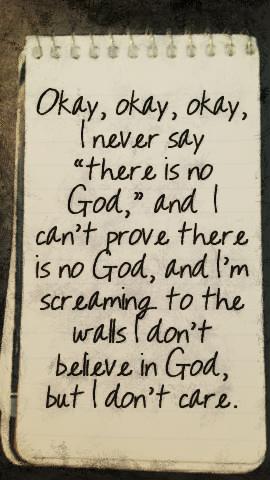 Okay, okay, okay,
I never say
“there is no
God,” and I
can't prove there
is no God, and I'm
screaming to the
walls I don't
believe in God,
but I don't care.